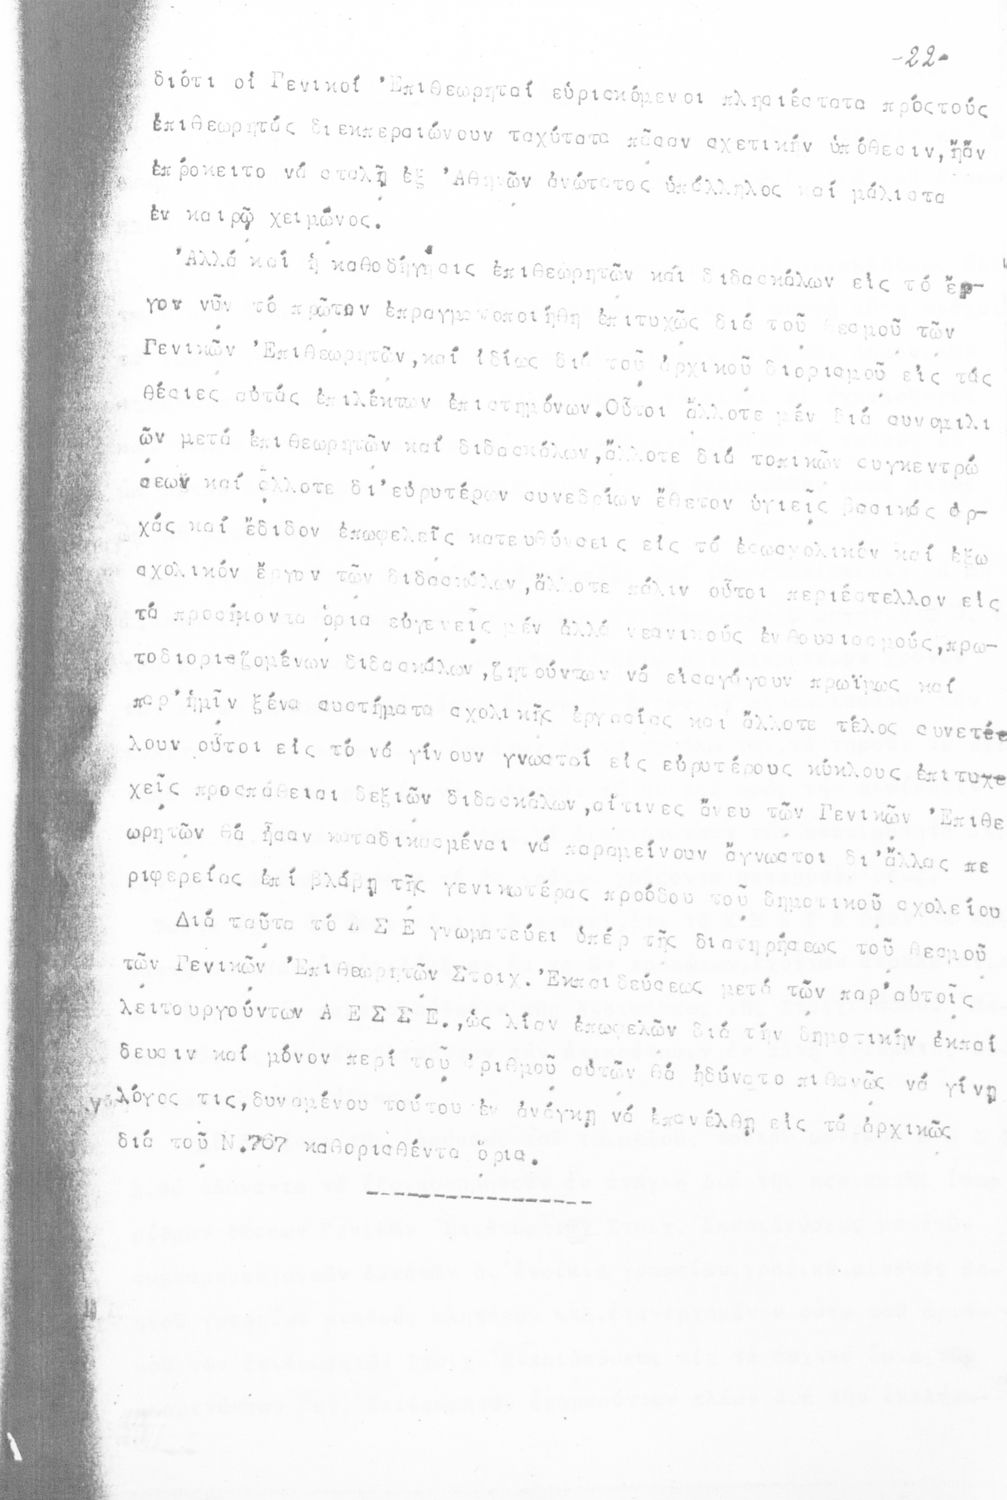 -22-
διότι οἱ Γενικοί Ἐπιθεωρηταί εὑρισκόμενοι πλησιέστατα πρός τούς
ἐπιθεωρητάς διεκπεραιώνουν ταχύτατα πᾶσαν σχετικήν ὑπόθεσιν, ἤ ἄν
ἐπρόκειτο νά σταλῇ ἐξ Ἀθηνῶν ἀνώτατος ὑπάλληλος καί μάλιστα
ἐν καιρῷ χειμῶνος.
Ἀλλά καί ἡ καθοδήγησις ἐπιθεωρητῶν καί διδασκάλων εἰς τό ἔρ-
γον νῦν τό πρῶτον ἐπραγματοποιήθη ἐπιτυχῶς διά τοῦ θεσμοῦ τῶν
Γενικῶν Ἐπιθεωρητῶν, καί ἰδίως διά τοῦ ἀρχικοῦ διορισμοῦ εἰς τάς
θέσιες αὐτάς ἐπιλέκτων ἐπιστημόνων. Οὗτοι ἄλλοτε μέν διά συνομιλι
ῶν μετά ἐπιθεωρητῶν καί διδασκάλων, ἄλλοτε διά τοπικῶν συγκεντρώ
σεων καί ἄλλοτε δι' εὐρυτέρων συνεδρίων ἔθετον ὑγιεῖς βασικάς ἀρ-
χάς καί ἔδιδον ἐπωφελεῖς κατευθύνσεις εἰς τό ἐσωσχολικόν καί ἐξω
σχολικόν ἔργον τῶν διδασκάλων, ἄλλοτε πάλιν οὗτοι περιέστελλον εἰς
τά προσήκοντα ὅρια εὐγενεῖς μέν ἀλλά νεανικούς ἐνθουσιασμούς, πρω-
τοδιοριζομένων διδασκάλων, ζητούντων νά εἰσαγάγουν πρωΐμως καί
παρ' ἡμῖν ξένα συστήματα σχολικῆς ἐργασίας καί ἄλλοτε τέλος συνετέ
λουν οὗτοι εἰς τό νά γίνουν γνωσταί εἰς εὐρυτέρους κύκλους ἐπιτυ
χεῖς προσπάθειαι δεξιῶν διδασκάλων, αἵτινες ἄνευ τῶν Γενικῶν Ἐπιθε
ωρητῶν θά ἦσαν καταδικασμέναι νά παραμείνουν ἄγνωστοι δι' ἄλλας πε
ριφερείας ἐπί βλάβῃ τῆς γενικωτέρας προόδου τοῦ δημοτικοῦ σχολείου
Διά ταῦτα τό Α Σ Ε γνωματεύει ὑπέρ τῆς διατηρήσεως τοῦ θεσμοῦ
τῶν Γενικῶν Ἐπιθεωρητῶν Στοιχ. Ἐκπαιδεύσεως μετά τῶν παρ' αὐτοῖς
λειτουργούντων Α Ε Σ Σ Ε., ὡς λίαν ἐπωφελῶν διά τήν δημοτικήν ἐκπαί
δευσιν καί μόνον περί τοῦ ἀριθμοῦ αὐτῶν θά ἠδύνατο πιθανῶς νά γίνῃ
λόγος τις, δυναμένου τούτου ἐν ἀνάγκῃ νά ἐπανέλθῃ εἰς τά ἀρχικῶς
διά τοῦ Ν. 767 καθορισθέντα ὅρια.